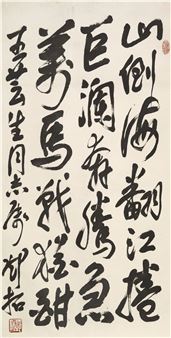 山倒海翻江捲
巨瀾奔騰急
萬馬戰猶酣
王芸生同志属 鄧拓